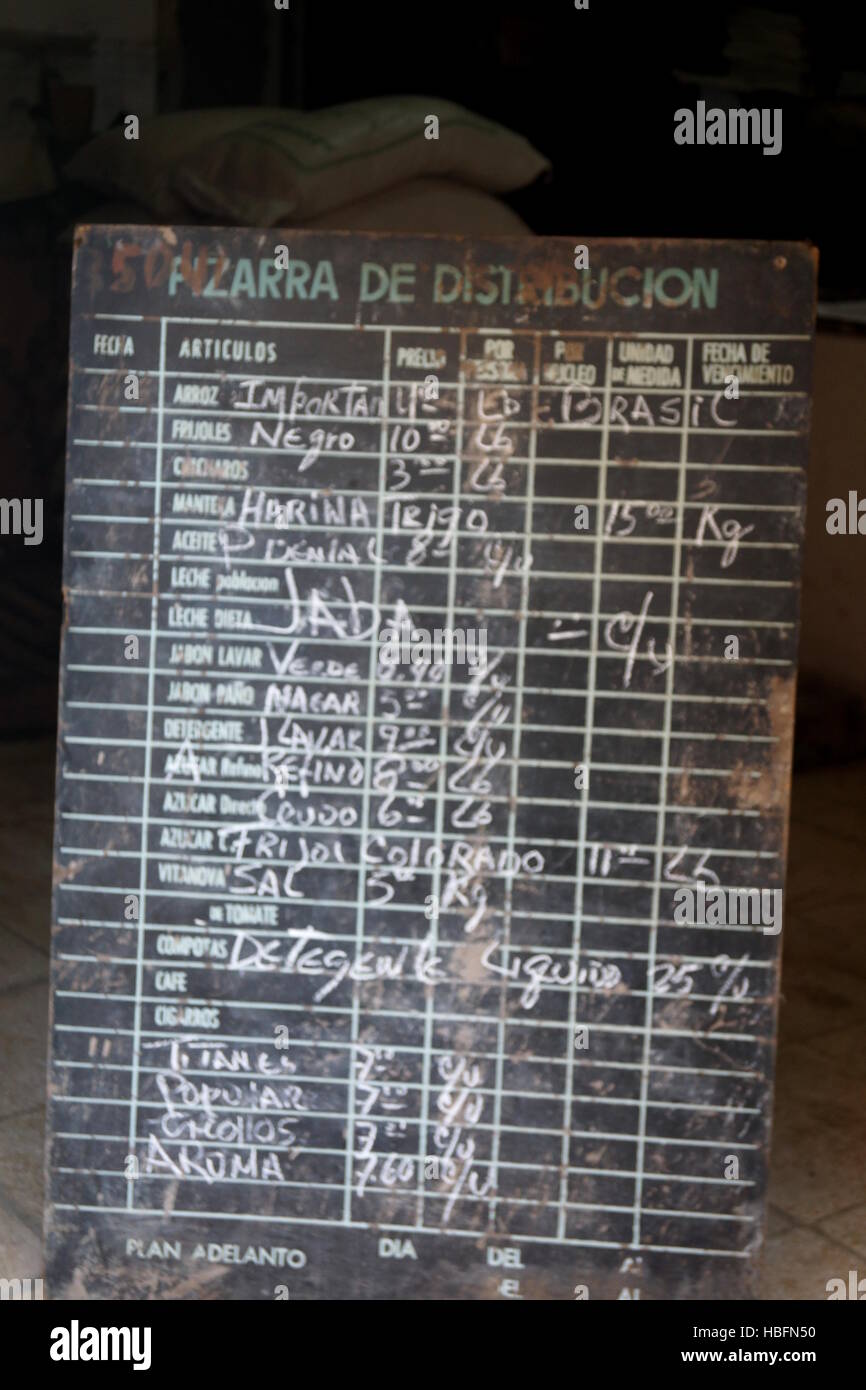 PIZARRA DE DISTRIBUCION
FECHA ARTICULOS PRECIO POR POR NUCLEO UNIDAD DE MEDIDA FECHA DE VENCIMIENTO
ARROZ IMPORTAN 4.00 Lb BRASIL
FRIJOLES NEgro 10.00 Lb
CHICHAROS 3.00 Lb
MANTEKA HARINA TRIGO 15.00 Kg
ACEITE 8.00 c/u
LECHE poblacion
LECHE DIETA JABA c/u
JABON LAVAR VERDE c/u
JABON PAÑO NACAR 5.00 c/u
DETERGENTE LAVAR 9.00 c/u
AZUCAR Refino REFINO 8.00 Lb
AZUCAR Directo CRUDO 6.00 Lb
AZUCAR FRIJOL COlORADO 11.00 Lb
VITANOVA SAL 5.00 Kg
DE TOMATE
COMPOTAS DETEGENTE LIQUIDO 25 c/u
CAFE
CIGARROS
TITANES 7.00 c/u
POPULAR 7.00 c/u
CRIOLLOS 7.00 c/u
AROMA 7.60 c/u
PLAN ADELANTO DIA DEL AL
alamy
Image ID: HBFN50
www.alamy.com